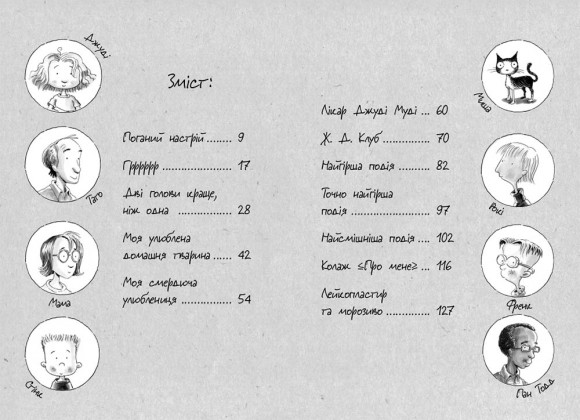 Джуді
Тато
Мама
Стінк
Зміст:
Поганий настрій ........ 9
Гррррр ................. 17
Дві голови краще,
ніж одна .............. 28
Моя улюблена
домашня тварина ..... 42
Моя смердюча
улюблениця ............... 54
Лікар Джуді Муді ... 60
Ж. Д. Клуб ............. 70
Найгірша подія ........ 82
Точно найгірша
подія ..................... 97
Найсмішніша подія .... 102
Колаж ≤Про мене≥ ... 116
Лейкопластир
та морозиво ............ 127
Миша
Рокі
Френк
Пан Тодд